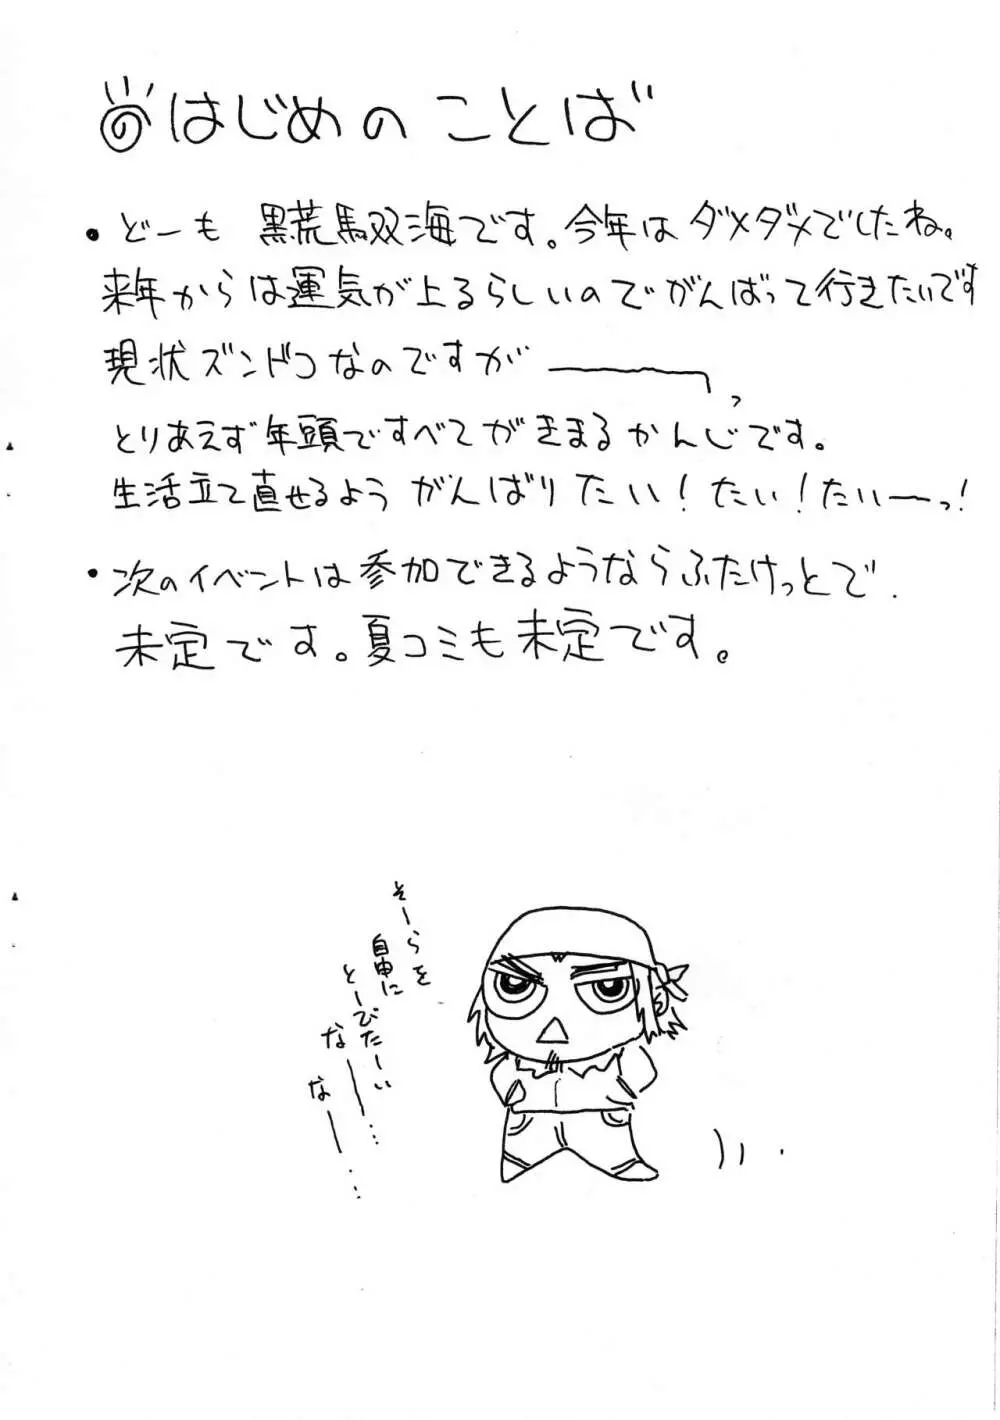 はじめのことば
・どーも 黒荒馬双海です。今年はダメダメでしたね。
来年からは運気が上るらしいのでがんばって行きたいです
現状ズンドコなのですが――っ
とりあえず年頭ですべてがきまるかんじです。
生活立て直せるよう がんばりたい!たい!たいーっ!
・次のイベントは参加できるようならふたけっとで.
未定です。夏コミも未定です。
そーらを
自由に
とーびたーい
なー…
なー…